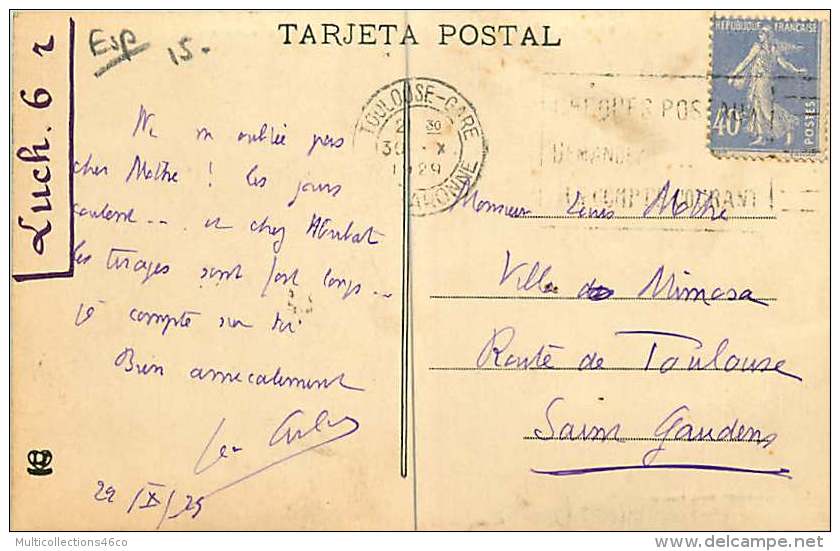 Luch. 6 r
Esp
15.-
TARJETA POSTAL
RÉPUBLIQUE FRANÇAISE
40
POSTES
TOULOUSE-GARE
2 30
30 - X
1929
GARONNE
CHEQUES POSTAUX
DEMANDEZ
COMPTE COURANT !
Ne m'oublie pas
cher Mothe ! les jours
coulent ... et chez
les tirages sont fort longs ...
Je compte sur toi
Bien amicalement
29/X/29
Monsieur Louis Mothe
Villa des Mimosa
Route de Toulouse
Saint Gaudens
Multicollections46co
delcampe.net